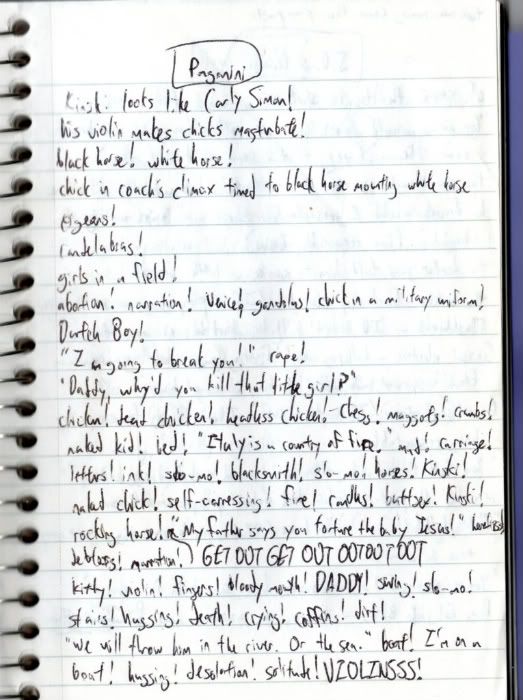 Paganini
Kinski looks like Carly Simon!
his violin makes chicks masturbate!
black horse! white horse!
chick in coach's climax timed to black horse mounting white horse
pigeons!
candelabras!
girls in a field!
abortion. narration! Venice! gondolas! chick in a military uniform!
Dutch Boy!
"I'm going to break you!" rape!
"Daddy, why'd you kill that little girl?"
chicken! dead chicken! headless chicken! chess! maggots! crumbs!
naked kid! bed! "Italy is a country of fire." mud! carriage!
letters! ink! slo-mo! blacksmith! slo-mo! horses! Kinski!
naked chick! self-carressing! fire! candles! buttsex! Kinski!
rocking horse! "My father says you torture the baby Jesus!"
narration! GET OUT GET OUT OOTOOTOOT
kitty! violin! fingers! bloody mouth! DADDY! swing! slo-mo!
stairs! hugging! death! crying! coffins! dirt!
"We will throw him in the river. Or the sea." boat! I'm on a
boat! hugging! desolation! solitude! VIOLINSSS!